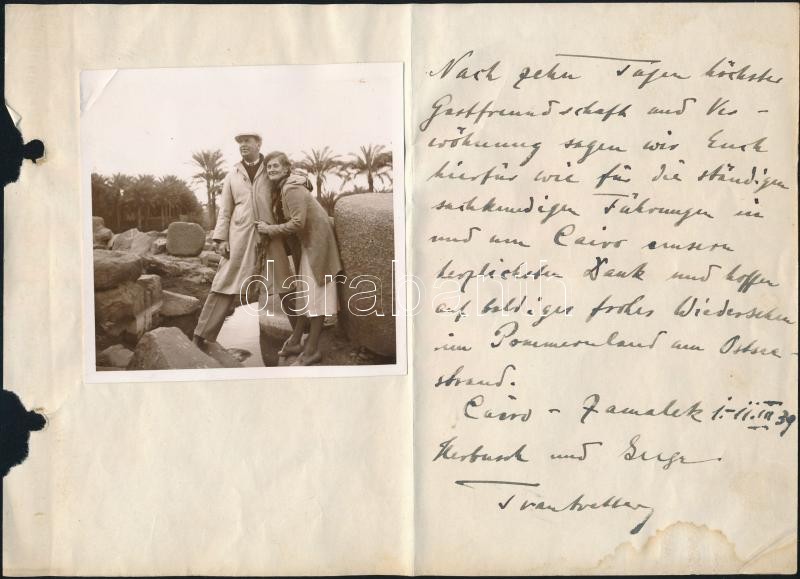 Nach zehn Tagen höchster
Gastfreundschaft und Ver-
wöhnung sagen wir Euch
hierfür wie für die ständigen
sachkundigen Führungen in
und um Cairo unsern
herzlichsten Dank und hoffen
auf baldiges frohes Wiedersehen
im Pommernland am Ostsee-
strand.
Cairo - Zamalek 1.-11.III 39
und
darabanth